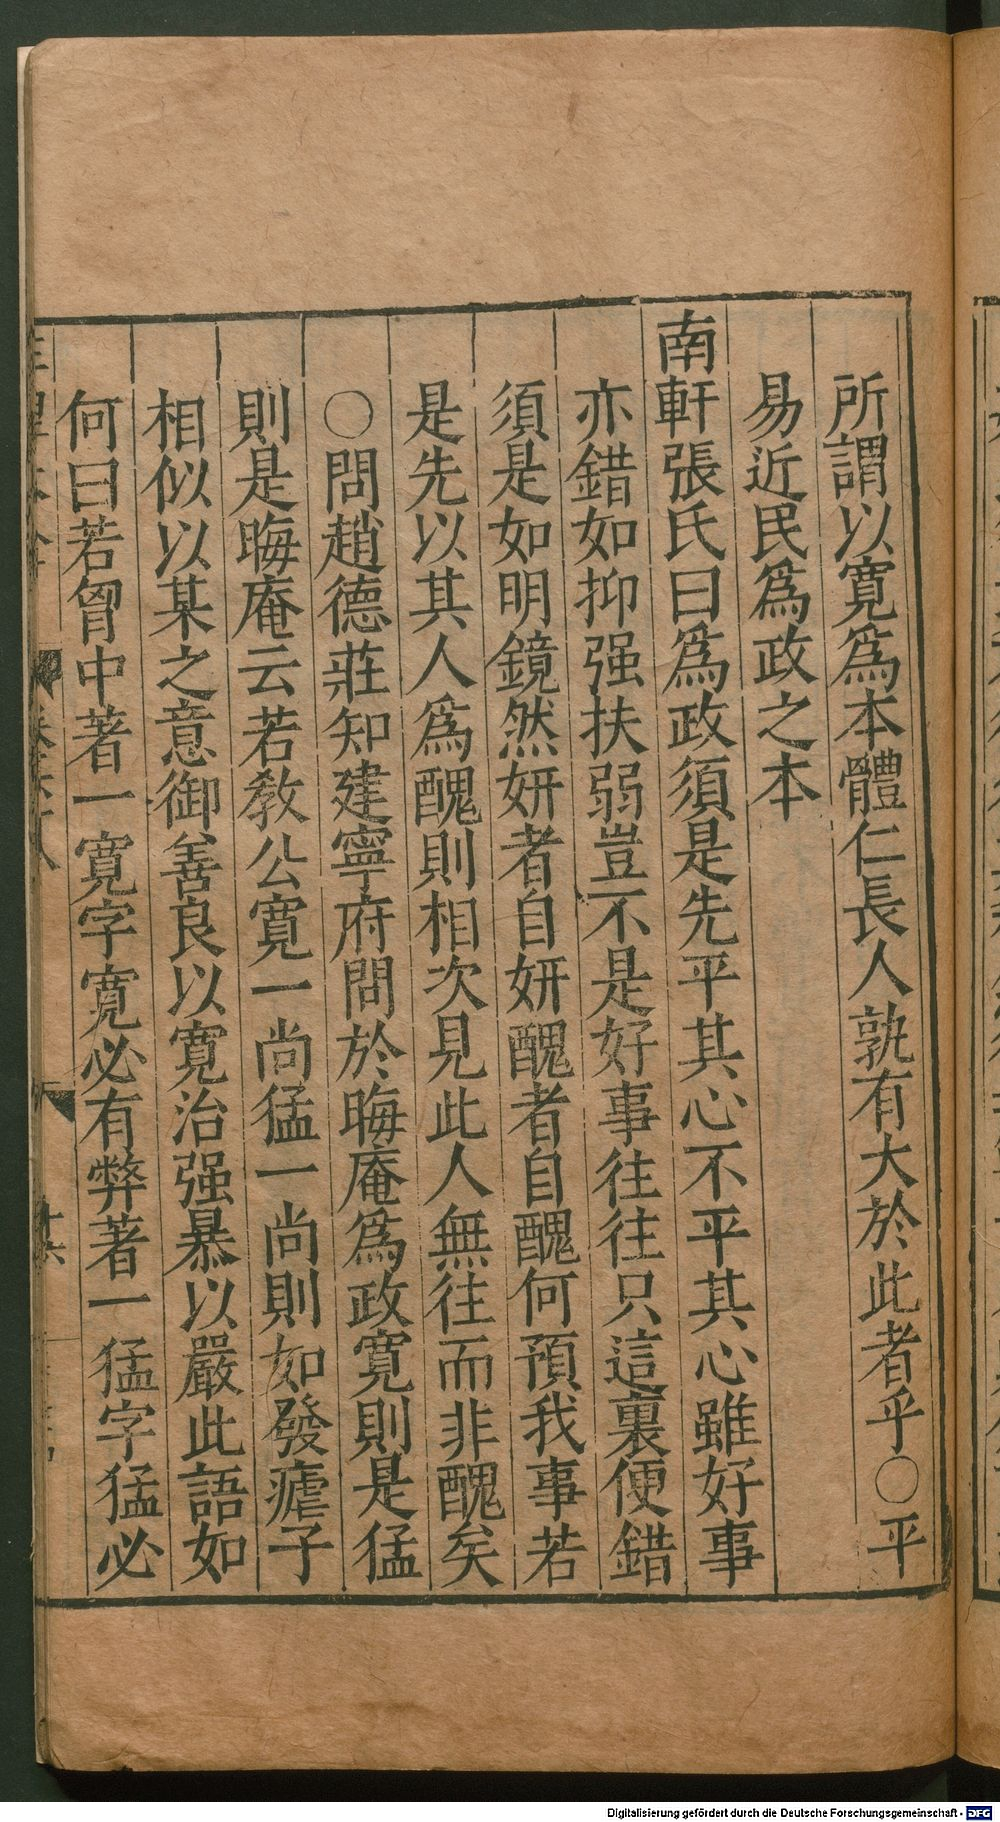 所謂以寬爲本體仁長人孰有大於此者乎○平
易近民爲政之本
南軒張氏曰爲政須是先平其心不平其心雖好事
亦錯如抑强扶弱豈不是好事往往只這裏便錯
須是如明鏡然妍者自妍醜者自醜何預我事若
是先以其人爲醜則相次見此人無往而非醜矣
○問趙德莊知建寧府問於晦庵爲政寬則是猛
則是晦庵云若教公寬一尚猛一尚則如發瘧子
相似以某之意御善良以寬治强暴以嚴此語如
何曰若胷中著一寬字寬必有弊著一猛字猛必
Digitalisierung gefördert durch die Deutsche Forschungsgemeinschaft - DFG